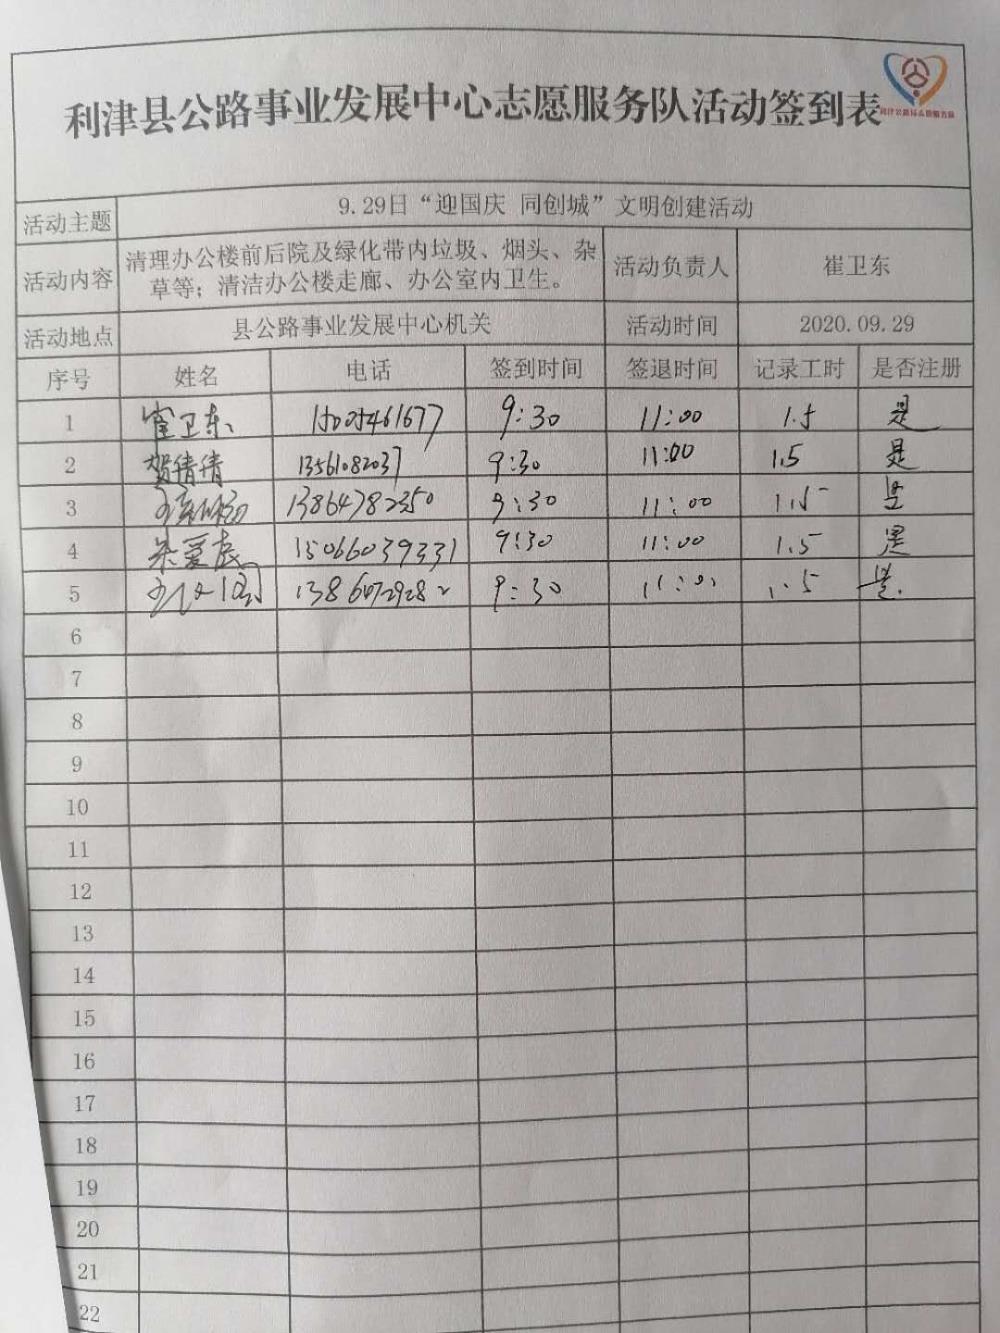 利津县公路事业发展中心志愿服务队活动签到表
活动主题 9.29日“迎国庆 同创城”文明创建活动
活动内容 清理办公楼前后院及绿化带内垃圾、烟头、杂
草等；清洁办公楼走廊、办公室内卫生。 活动负责人 崔卫东
活动地点 县公路事业发展中心机关 活动时间 2020.09.29
序号 姓名 电话 签到时间 签退时间 记录工时 是否注册
1 崔卫东 9:30 11:00 1.5 是
2 贺倩倩 13561082037 9:30 11:00 1.5 是
3 13864782350 9:30 11:00 1.5 是
4 15066039331 9:30 11:00 1.5 是
5 13860729282 9:30 11:00 1.5 是
6
7
8
9
10
11
12
13
14
15
16
17
18
19
20
21
22